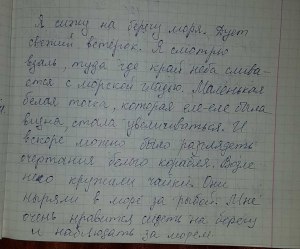 Я сижу на берегу моря. Дует
свежий ветерок. Я смотрю
вдаль, туда где край неба слива-
ется с морской гладью. Маленькая
белая точка, которая еле-еле была
видна, стала увеличиваться. И
вскоре можно было разглядеть
очертания белого корабля. Возле
него кружили чайки. Они
ныряли в море за рыбой. Мне
очень нравится сидеть на берегу
и наблюдать за морем